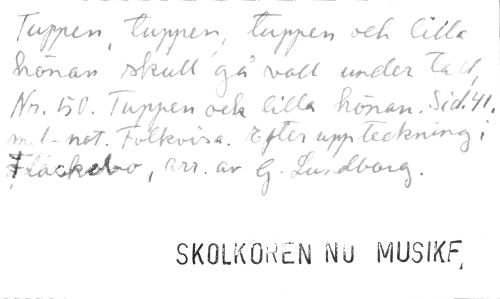 Tuppen, tuppen, tuppen och lilla
hönan skull gå vall under tall,
Nr. 50. Tuppen och lilla hönan. Sid. 41.
mel-not. Folkvisa. Efter uppteckning i
Fläckebo, arr. av G. Lundborg.
SKOLKÖREN NU MUSIKF,